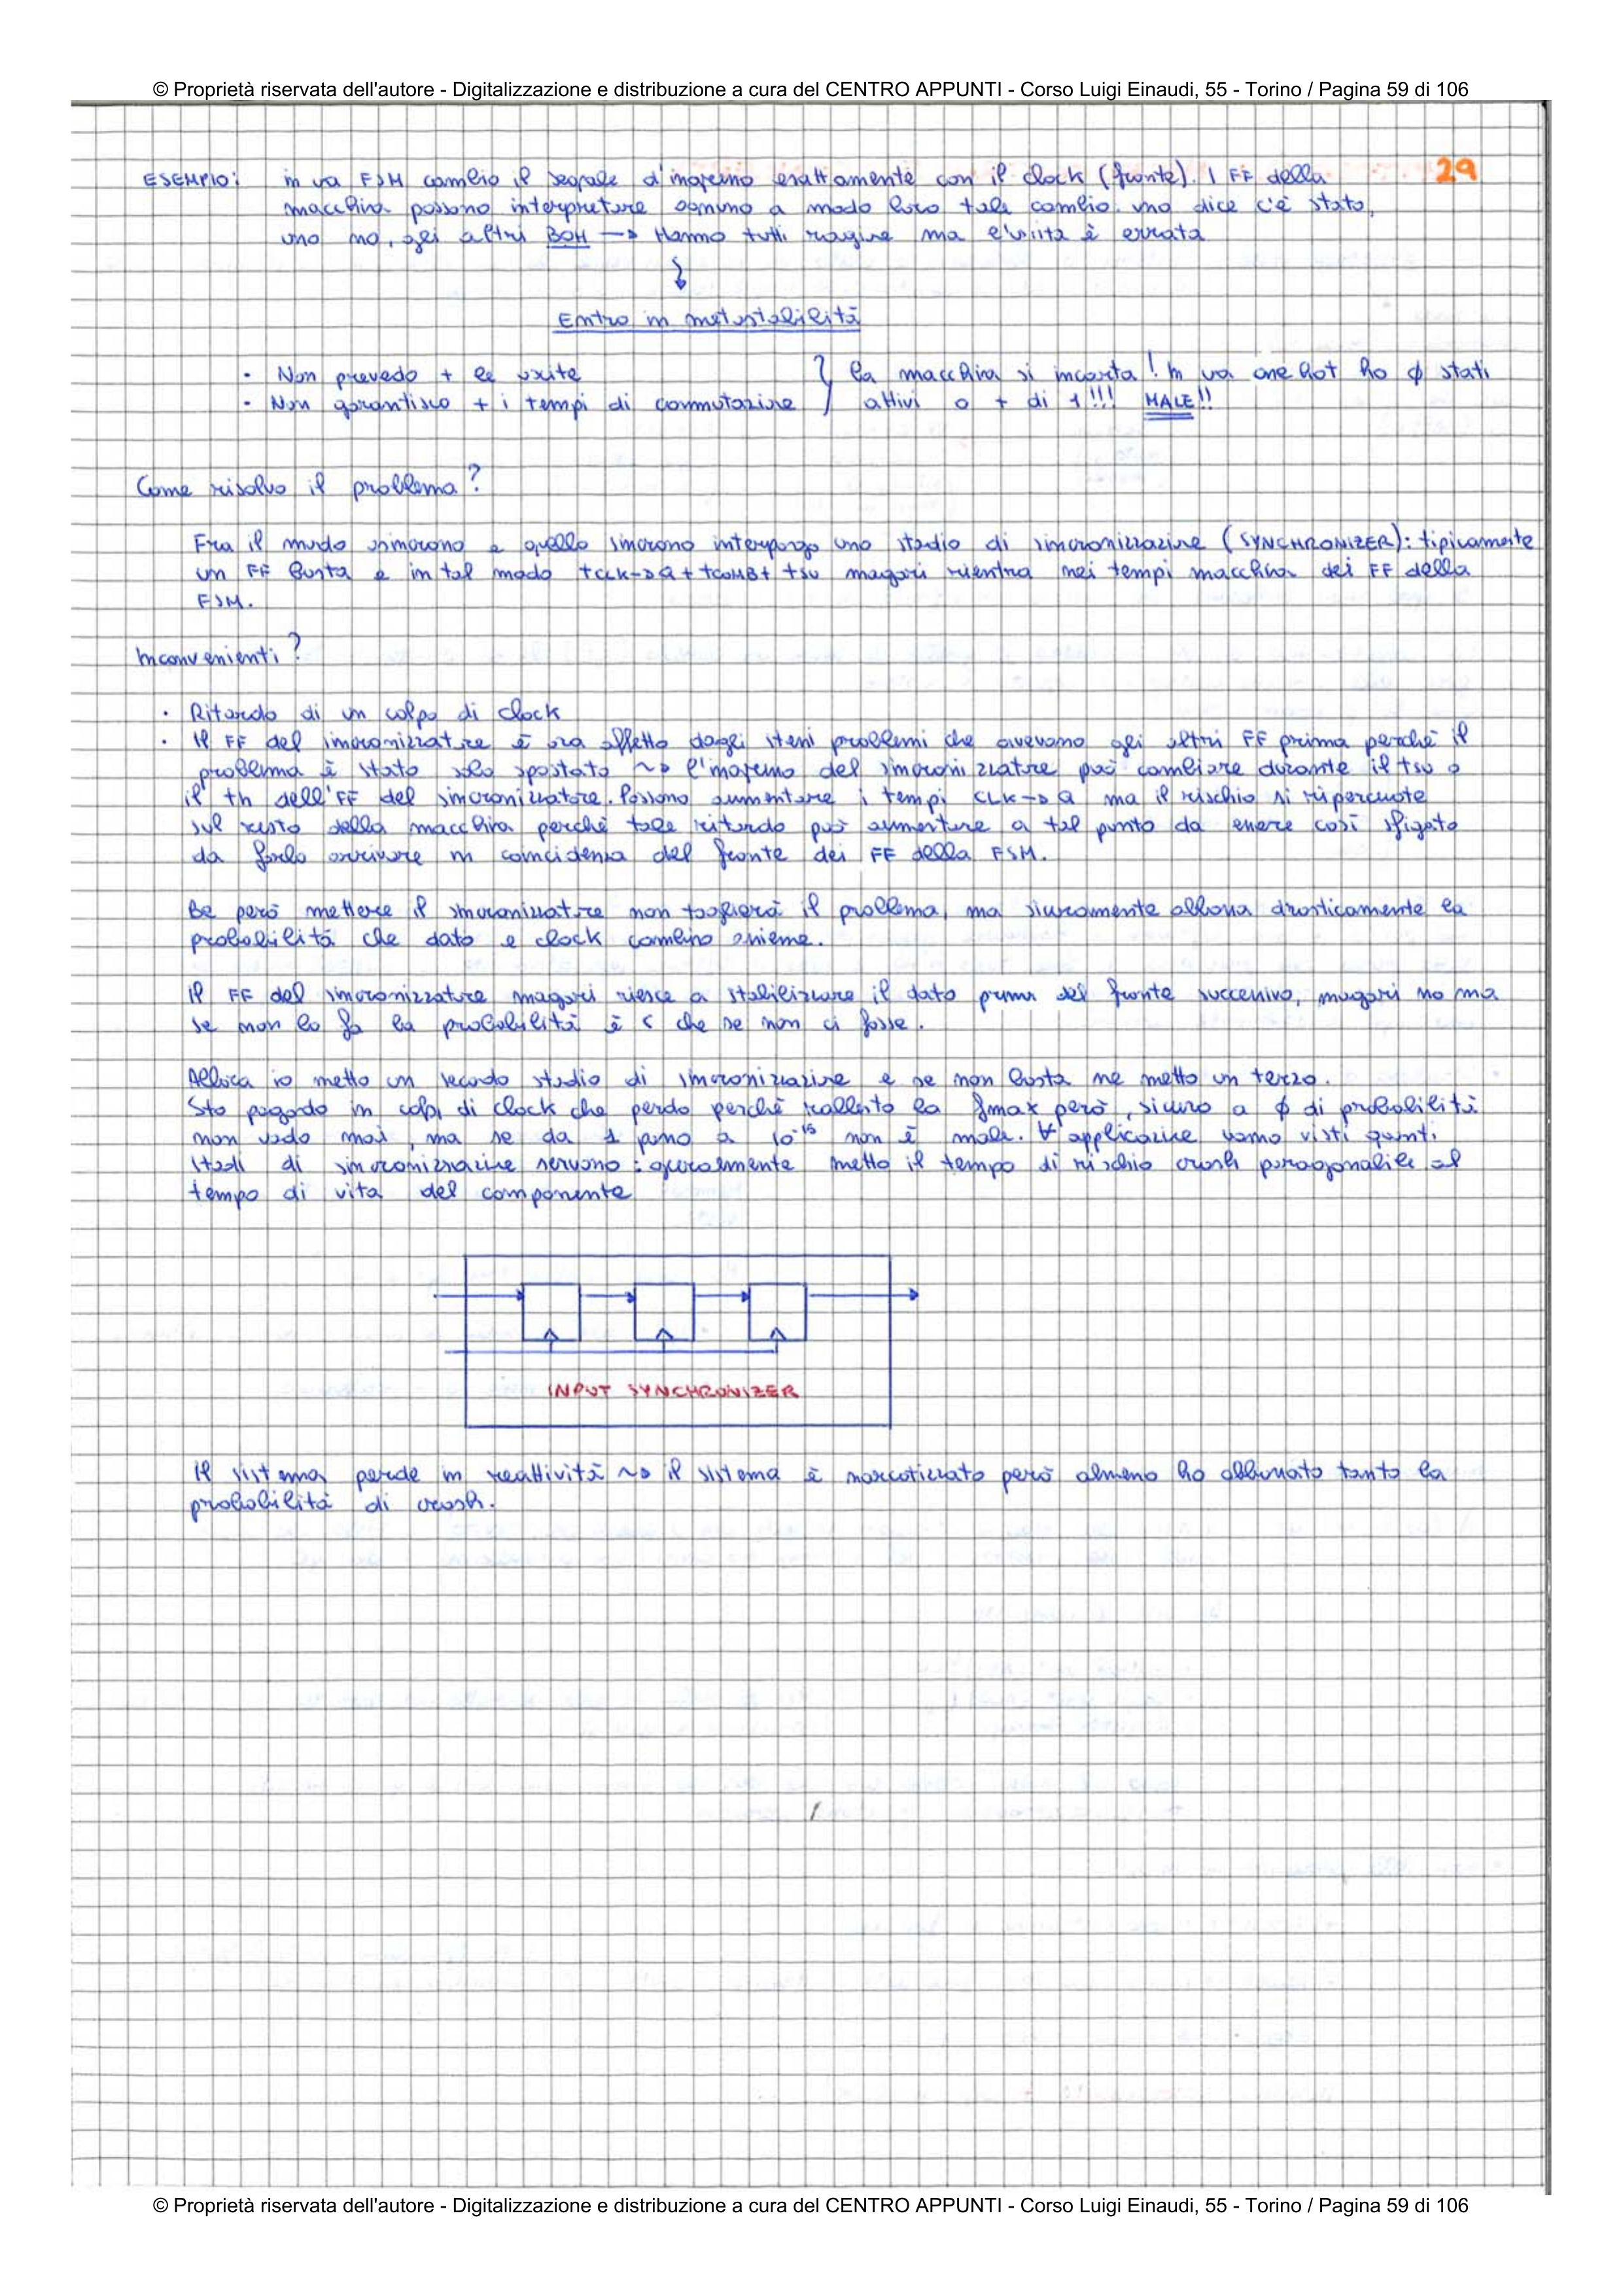 © Proprietà riservata dell'autore - Digitalizzazione e distribuzione a cura del CENTRO APPUNTI - Corso Luigi Einaudi, 55 - Torino / Pagina 59 di 106
29
ESEMPIO: in una FSM cambio il segnale d'ingresso esattamente con il clock (fronte). I FF della
macchina possono interpretare ognuno a modo loro tale cambio: uno dice c'è stato,
uno no, gli altri BOH → Hanno tutti ragione ma l'uscita è errata
↓
Entro in metastabilità
• Non prevedo + le uscite } la macchina si incarta! In una one hot ho ϕ stati
• Non garantisco + i tempi di commutazione } attivi o + di 1!!! MALE!!
Come risolvo il problema?
Fra il mondo asincrono e quello sincrono interpongo uno stadio di sincronizzazione (SYNCHRONIZER): tipicamente
un FF basta e in tal modo tCLK→Q + tCOMB + tsu magari rientra nei tempi macchina dei FF della
FSM.
Inconvenienti?
• Ritardo di un colpo di clock
• Il FF del sincronizzatore è ora affetto dagli stessi problemi che avevano gli altri FF prima perchè il
problema è stato solo spostato ~> l'ingresso del sincronizzatore può cambiare durante il tsu o
il th dell'FF del sincronizzatore. Possono aumentare i tempi CLK→Q ma il rischio si ripercuote
sul resto della macchina perchè tale ritardo può aumentare a tal punto da essere così sfigato
da farlo arrivare in coincidenza del fronte dei FF della FSM.
Be però mettere il sincronizzatore non toglierà il problema, ma sicuramente abbassa drasticamente la
probabilità che dato e clock cambino insieme.
Il FF del sincronizzatore magari riesce a stabilizzare il dato prima del fronte successivo, magari no ma
se non lo fa la probabilità è < che se non ci fosse.
Allora io metto un secondo stadio di sincronizzazione e se non basta ne metto un terzo.
Sto pagando in colpi di clock che perdo perchè rallento la fmax però, sicuro a ϕ di probabilità
non vado mai, ma se da 1 passo a 10⁻¹⁵ non è male. ∀ applicazione vanno visti quanti
stadi di sincronizzazione servono: generalmente metto il tempo di rischio crash paragonabile al
tempo di vita del componente
INPUT SYNCHRONIZER
Il sistema perde in reattività ~> il sistema è narcotizzato però almeno ho abbassato tanto la
probabilità di crash.
© Proprietà riservata dell'autore - Digitalizzazione e distribuzione a cura del CENTRO APPUNTI - Corso Luigi Einaudi, 55 - Torino / Pagina 59 di 106